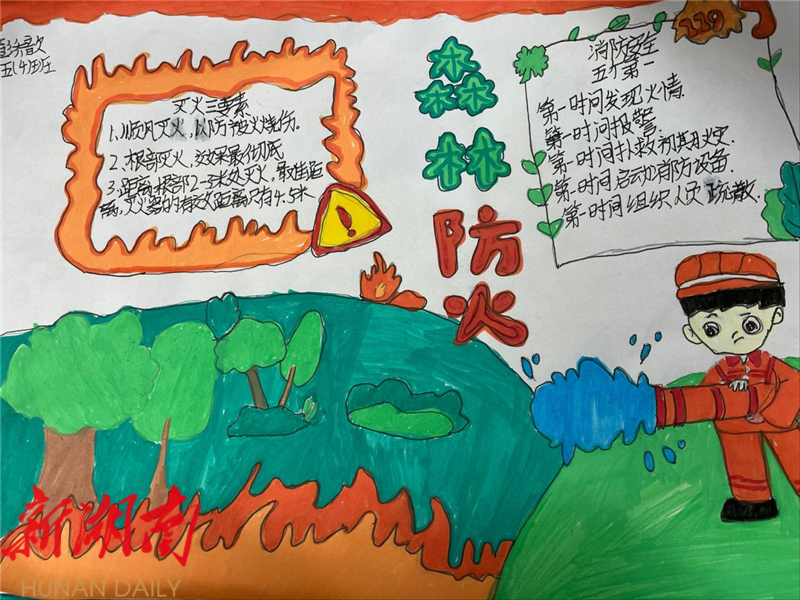 五(4)班
灭火三要素
1、顺风灭火,以防被火烧伤。
2、根部灭火,效果最彻底
3、距离根部2-3米处灭火,最佳距
离,灭火器的有效距离只有4.5米
森林
防火
消防安全
五个第一
第一时间发现火情.
第一时间报警.
第一时间扑救初期火灾.
第一时间启动消防设备.
第一时间组织人员疏散.
119
新湖南
HUNAN DAILY